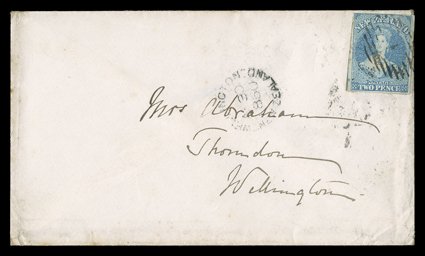 NEW ZEALAND
TWO PENCE
Mrs Abraham
Thorndon
Wellington